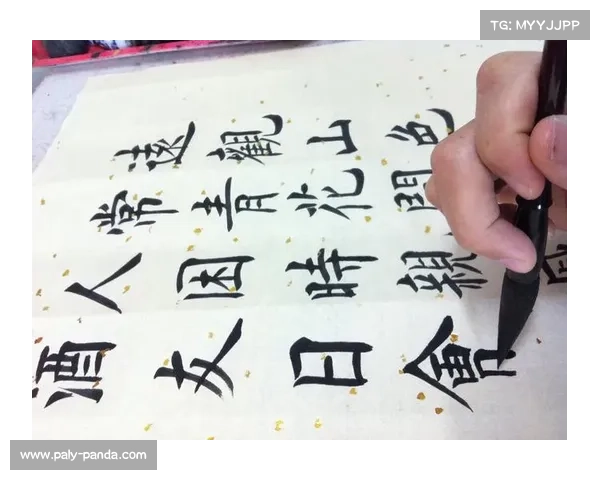 TG: MYYJJPP
遠觀山色
常青花
人因時親
酒友日會
www.paly-panda.com